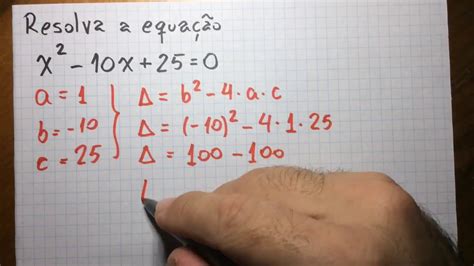 Resolva a equação
x² - 10x + 25 = 0
a = 1
b = -10
c = 25
Δ = b² - 4 · a · c
Δ = (-10)² - 4 · 1 · 25
Δ = 100 - 100